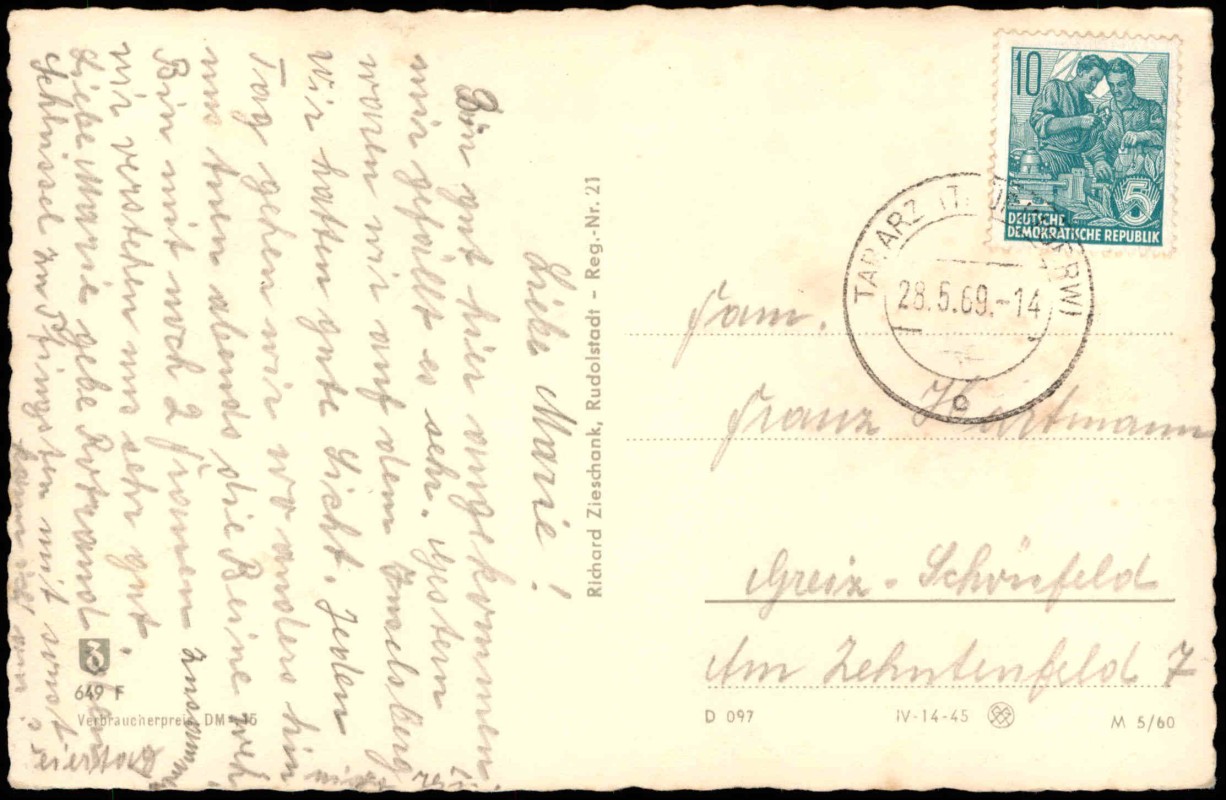 Liebe Marie!
Bin gut hier angekommen
mir gefällt es sehr. Gestern
waren wir auf dem Inselsberg
Wir hatten gute Sicht. Jeden
Tag gehen wir wo anders hin
uns tun abends die Beine weh
Bin mit noch 2 Frauen zusammen
wir verstehen uns sehr gut.
Liebe Marie gebe Rotraud den
Schlüssel zu Pfingsten mit sonst
kann ich am
Feiertag
Richard Zieschank, Rudolstadt - Reg.-Nr. 21
10
5
DEUTSCHE
DEMOKRATISCHE REPUBLIK
TABARZ
28.5.69.-14
Fam.
Franz Hartmann
Greiz-Schönfeld
Am Zehntenfeld 7
649 F
Verbraucherpreis DM -,15
D 097 IV-14-45 M 5/60